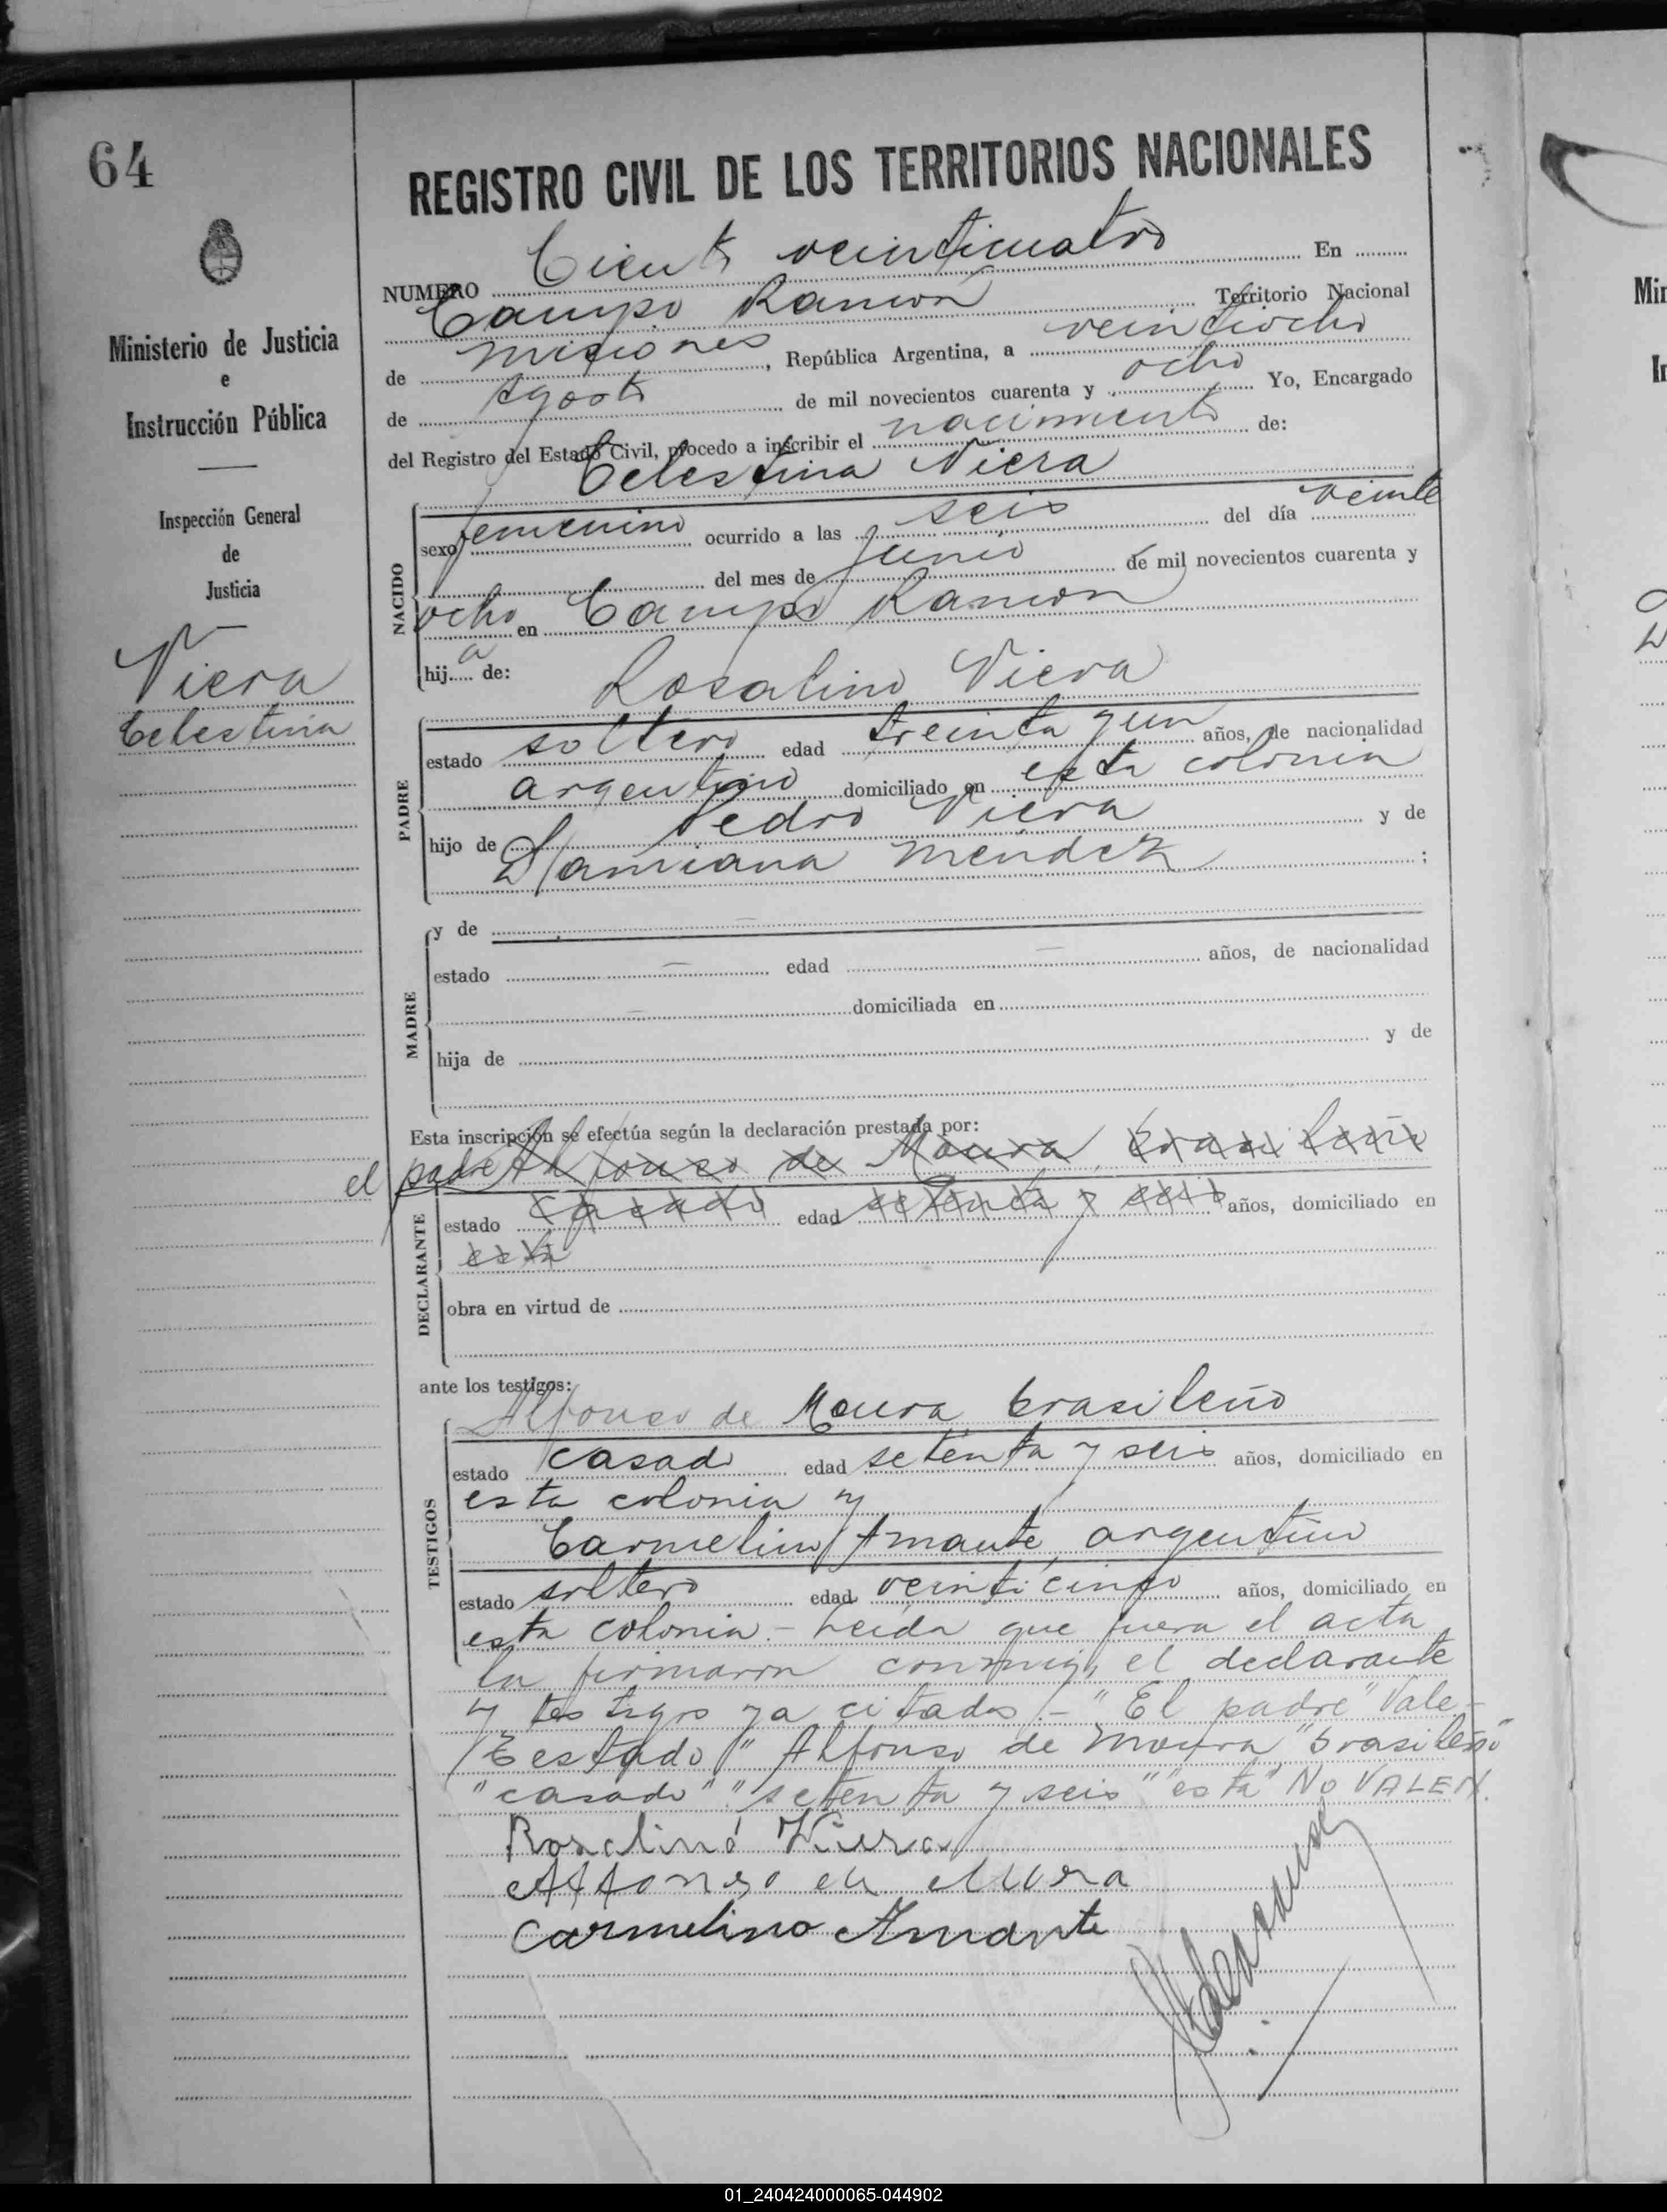 64
REGISTRO CIVIL DE LOS TERRITORIOS NACIONALES
NUMERO Ciento veinticuatro En
Campo Ramón Territorio Nacional
de Misiones, República Argentina, a veintiocho
de Agosto de mil novecientos cuarenta y ocho Yo, Encargado
del Registro del Estado Civil, procedo a inscribir el nacimiento de:
Celestina Viera
Ministerio de Justicia
e
Instrucción Pública
Inspección General
de
Justicia
Viera
Celestina
NACIDO
sexo femenino ocurrido a las seis del día veinte
del mes de Junio de mil novecientos cuarenta y
ocho en Campo Ramon
hija de: Rosalino Viera
PADRE
estado soltero edad treinta y un años, de nacionalidad
argentino domiciliado en esta colonia
hijo de Pedro Viera y de
Damiana Mendez ;
MADRE
y de
estado edad años, de nacionalidad
domiciliada en
hija de y de
Esta inscripción se efectúa según la declaración prestada por:
el padre Alfonso de Moura, brasileño
DECLARANTE
estado casado edad setenta y seis años, domiciliado en
esta
obra en virtud de
ante los testigos:
TESTIGOS
Alfonso de Moura brasileño
estado casado edad setenta y seis años, domiciliado en
esta colonia y
Carmelino Amante, argentino
estado soltero edad veinticinco años, domiciliado en
esta colonia.- Leída que fuera el acta
la firmaron conmigo, el declarante
y testigos ya citados.- "El padre" Vale-
Testado "Alfonso de Moura" "brasileño"
"casado" "setenta y seis" "esta" NO VALEN.
Rosalino Viera
Affonso de Mora
Carmelino Amante
Min
01_240424000065-044902